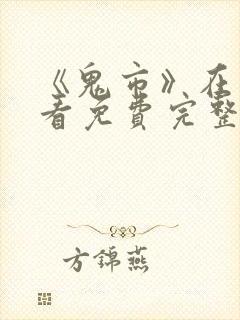 《鬼市》在
看免费完整
方錦燕